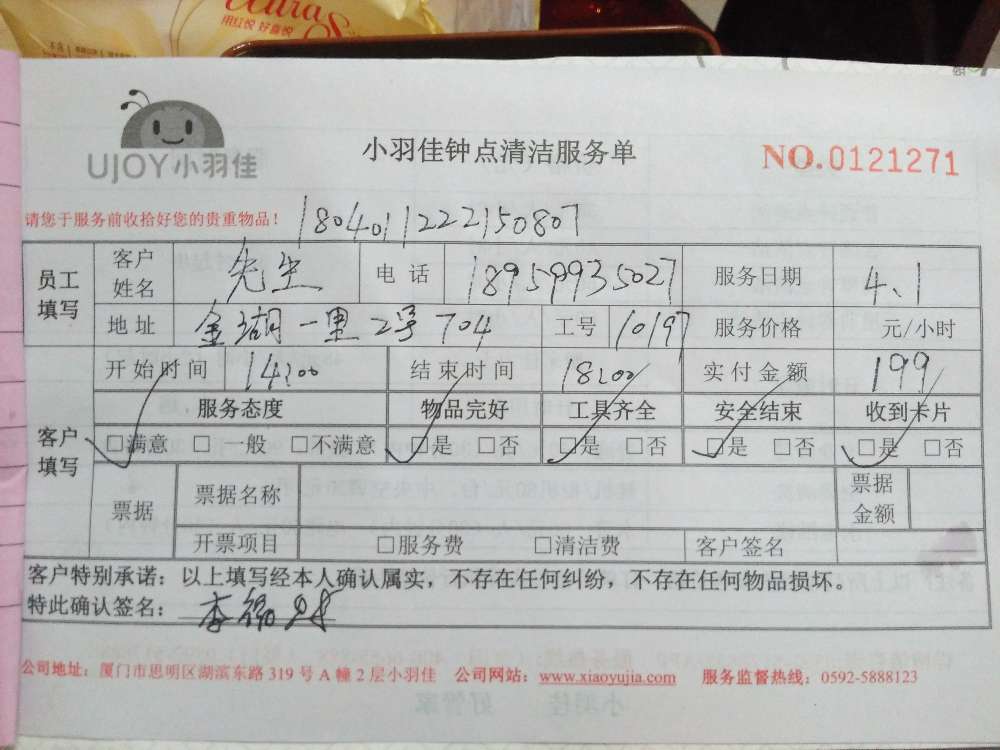 用红悦 好喜悦
UJOY小羽佳
小羽佳钟点清洁服务单
NO.0121271
请您于服务前收拾好您的贵重物品！
1804011222150807
员工填写 客户姓名 先生 电话 18959935027 服务日期 4、1
地址 金湖一里2号704 工号 10197 服务价格 元/小时
客户填写 开始时间 14:00 结束时间 18:00 实付金额 199
服务态度 物品完好 工具齐全 安全结束 收到卡片
☐满意 ☐一般 ☐不满意 ☐是 ☐否 ☐是 ☐否 ☐是 ☐否 ☐是 ☐否
票据 票据名称 票据金额
开票项目 ☐服务费 ☐清洁费 客户签名
客户特别承诺：以上填写经本人确认属实，不存在任何纠纷，不存在任何物品损坏。
特此确认签名：李
公司地址：厦门市思明区湖滨东路319号A幢2层小羽佳 公司网站：www.xiaoyujia.com 服务监督热线：0592-5888123